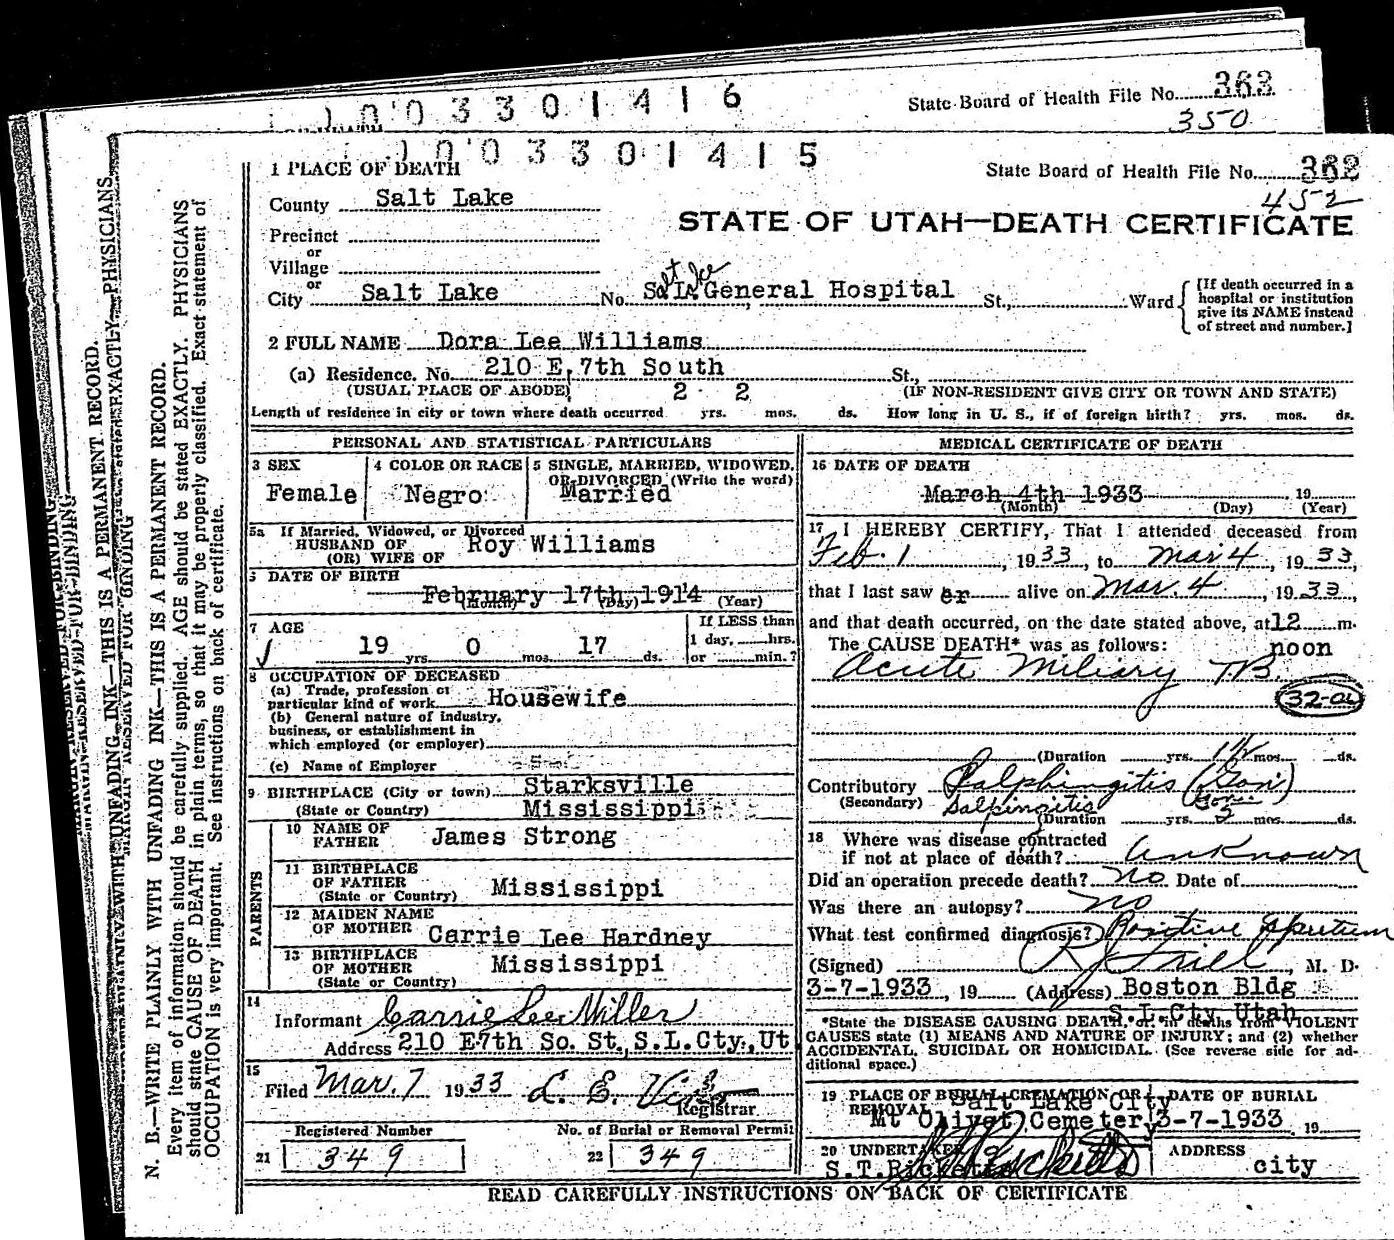 0 0 3 3 0 1 4 1 6
State Board of Health File No. 363
350
0 0 3 3 0 1 4 1 5
State Board of Health File No. 362
452
1 PLACE OF DEATH
County Salt Lake
STATE OF UTAH—DEATH CERTIFICATE
Precinct
or
Village
or
City Salt Lake No. S. L. General Hospital St., Ward
Salt Lake
[If death occurred in a
hospital or institution
give its NAME instead
of street and number.]
2 FULL NAME Dora Lee Williams
(a) Residence. No. 210 E. 7th South St.,
(USUAL PLACE OF ABODE) 2 2 (IF NON-RESIDENT GIVE CITY OR TOWN AND STATE)
Length of residence in city or town where death occurred yrs. mos. ds. How long in U. S., if of foreign birth? yrs. mos. ds.
PERSONAL AND STATISTICAL PARTICULARS
3 SEX
Female
4 COLOR OR RACE
Negro
5 SINGLE, MARRIED, WIDOWED,
OR DIVORCED (Write the word)
Married
5a If Married, Widowed, or Divorced
HUSBAND OF
(OR) WIFE OF Roy Williams
6 DATE OF BIRTH
February 17th 1914
(Month) (Day) (Year)
7 AGE
19 yrs. 0 mos. 17 ds.
If LESS than
1 day, hrs.
or min.?
8 OCCUPATION OF DECEASED
(a) Trade, profession or
particular kind of work Housewife
(b) General nature of industry,
business, or establishment in
which employed (or employer)
(c) Name of Employer
9 BIRTHPLACE (City or town) Starksville
(State or Country) Mississippi
PARENTS
10 NAME OF
FATHER James Strong
11 BIRTHPLACE
OF FATHER
(State or Country) Mississippi
12 MAIDEN NAME
OF MOTHER Carrie Lee Hardney
13 BIRTHPLACE
OF MOTHER
(State or Country) Mississippi
14
Informant Carrie Lee Miller
Address 210 E7th So. St., S.L.Cty., Ut
15
Filed Mar. 7 1933
Registrar
Registered Number
21 349
No. of Burial or Removal Permit
22 349
MEDICAL CERTIFICATE OF DEATH
16 DATE OF DEATH
March 4th 1933 , 19
(Month) (Day) (Year)
17 I HEREBY CERTIFY, That I attended deceased from
Feb. 1 , 1933, to Mar 4 , 1933,
that I last saw er alive on Mar. 4 , 1933,
and that death occurred, on the date stated above, at 12 m.
noon
The CAUSE DEATH* was as follows:
Acute Miliary TB
32-a
(Duration yrs. 1 1/2 mos. ds.
Contributory Salphingitis (Gon)
(Secondary) Salpingitis
(Duration yrs. 3 mos. ds.
18 Where was disease contracted
if not at place of death? Unknown
Did an operation precede death? No Date of
Was there an autopsy? No
What test confirmed diagnosis? Positive Sputum
(Signed) , M. D.
3-7-1933 , 19 (Address) Boston Bldg
S.L.Cty Utah
*State the DISEASE CAUSING DEATH, or, in deaths from VIOLENT
CAUSES state (1) MEANS AND NATURE OF INJURY; and (2) whether
ACCIDENTAL, SUICIDAL OR HOMICIDAL. (See reverse side for ad-
ditional space.)
19 PLACE OF BURIAL, CREMATION OR
REMOVAL Salt Lake City
Mt Olivet Cemetery
DATE OF BURIAL
3-7-1933 19
20 UNDERTAKER
S.T.Ricketts
ADDRESS
city
READ CAREFULLY INSTRUCTIONS ON BACK OF CERTIFICATE
MARGIN RESERVED FOR BINDING
N. B.—WRITE PLAINLY WITH UNFADING INK—THIS IS A PERMANENT RECORD.
Every item of information should be carefully supplied. AGE should be stated EXACTLY. PHYSICIANS
should state CAUSE OF DEATH in plain terms, so that it may be properly classified. Exact statement of
OCCUPATION is very important. See instructions on back of certificate.